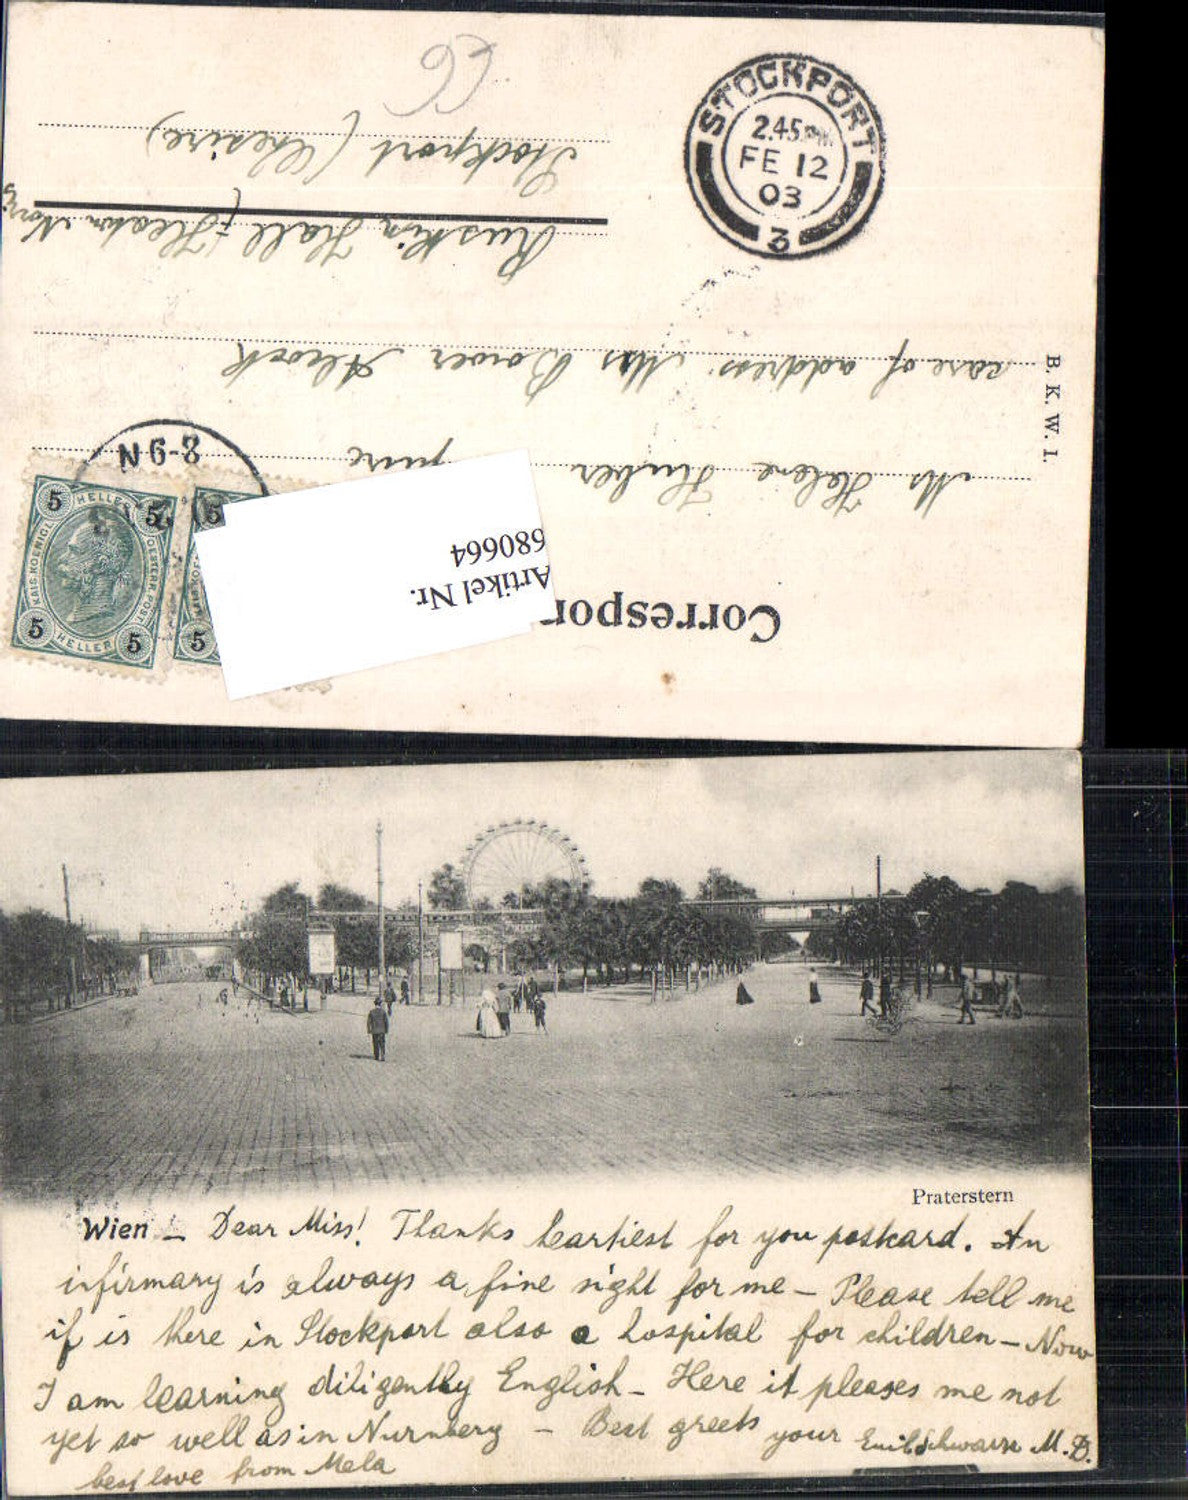 Correspon
Artikel Nr.
680664
5 HELLER 5
KAIS. KOENIGL. OESTERR. POST
5 HELLER 5
5
5
8-9 N
Ms Helene Huber
care of address: Mss Bower Alcock
Ruskin Hall (Heaton Norris
Stockport (Chesire)
B. K. W. I.
STOCKPORT
2.45 PM
FE 12
03
3
Praterstern
Wien – Dear Miss! Thanks heartiest for you postcard. An
infirmary is always a fine sight for me – Please tell me
if is there in Stockport also a hospital for children – Now
I am learning diligently English – Here it pleases me not
yet so well as in Nurnberg – Best greets your Emil Schwarz M.D.
best love from Mela